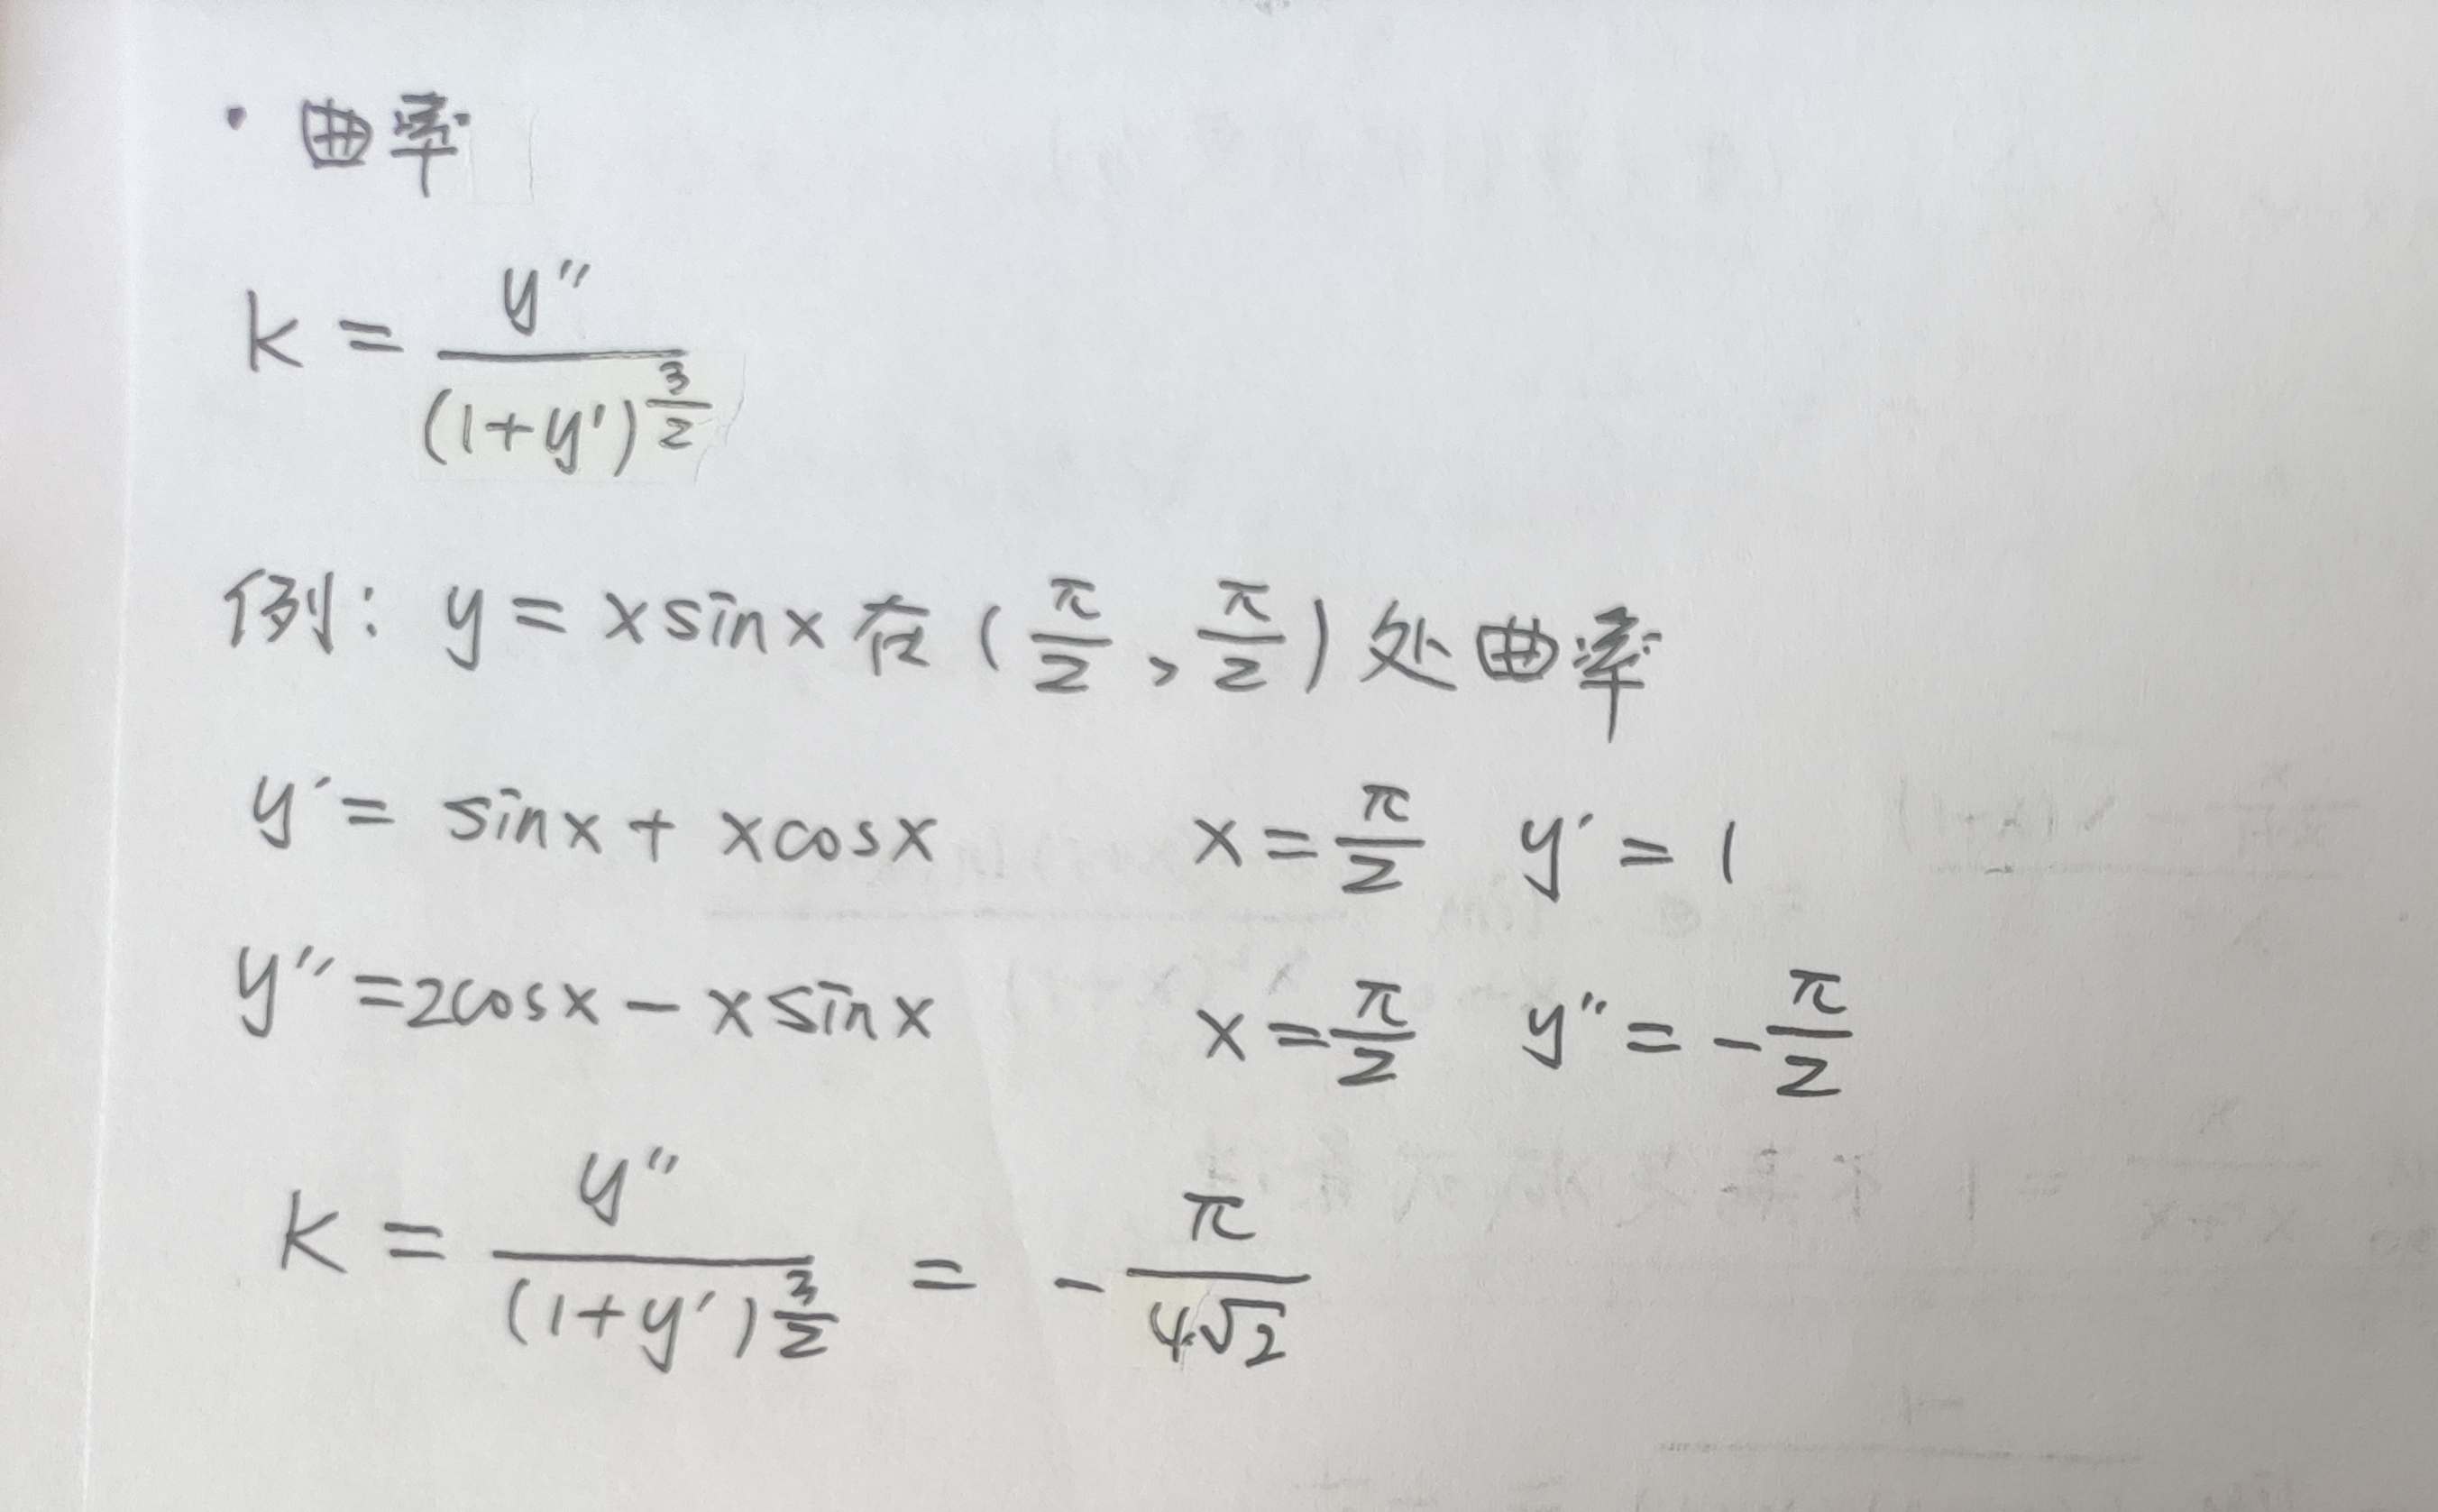 · 曲率
k = y'' / (1+y')^(3/2)
例: y = x sin x 在 (π/2, π/2) 处曲率
y' = sin x + x cos x    x = π/2  y' = 1
y'' = 2cos x − x sin x    x = π/2  y'' = −π/2
k = y'' / (1+y')^(3/2) = −π / (4√2)